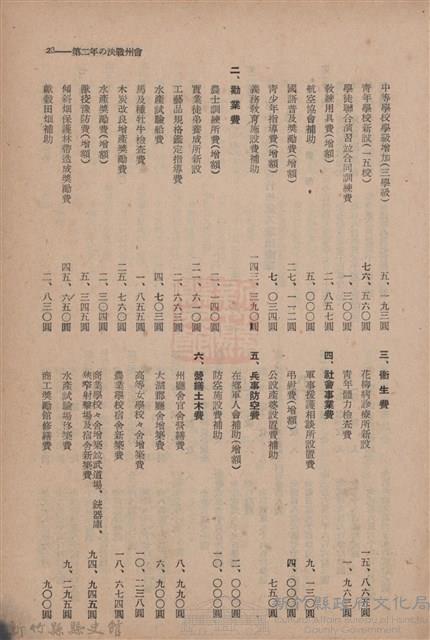 23——第二年の決戰州會
中等學校學級增加(三學級) 五、一九三圓
青年學校新設(一五校) 七六、五六〇圓
學徒聯合演習竝合同訓練費 一、三〇〇圓
教練用具費(增額) 二、八五七圓
航空協會補助 五、〇〇〇圓
國語普及獎勵費(增額) 二七、一一二圓
青少年指導費(增額) 七、〇三四圓
義務教育施設費補助 一四三、三九〇圓
二、勸業費
農士訓練所費(增額) 二、一四〇圓
實業徒弟養成所新設 二一、六一〇圓
工藝品規格鑑定指導費 二、六六三圓
水產試驗船費 四、七〇三圓
馬及種牡牛檢查費 一、八五五圓
木炭改良增產獎勵費 二五、七六〇圓
水產獎勵費(增額) 二、三〇四圓
獸疫豫防費(增額) 五、三四五圓
傾斜畑保護林帶造成獎勵費 四五、六五〇圓
獻穀田畑補助 二、八三〇圓
三、衞生費
花柳病診療所新設 一五、八六五圓
青年體力檢查費 一、九六一圓
四、社會事業費
軍事援護相談所設置費 九、一三〇圓
弔慰費(增額) 四、〇〇〇圓
公設產婆設置費補助 七五〇圓
五、兵事防空費
在鄉軍人會補助(增額) 二、〇〇〇圓
防空施設費補助 一〇、〇〇〇圓
六、營繕土木費
州廳舍官舍營繕費 八、九九〇圓
大湖郡廳舍增築費 六、九〇〇圓
高等女學校々舍增築費 一〇、二三八圓
農業學校宿舍新築費 一八、六七四圓
商業學校々舍增築竝武道場、銃器庫、
狹窄射擊場及宿舍新築費 九四、九四五圓
水產試驗場移築費 九、二九五圓
商工獎勵館修繕費 九〇〇圓
新竹縣縣史館
新竹縣政府文化局
Cultural Affairs Bureau of Hsinchu County Government